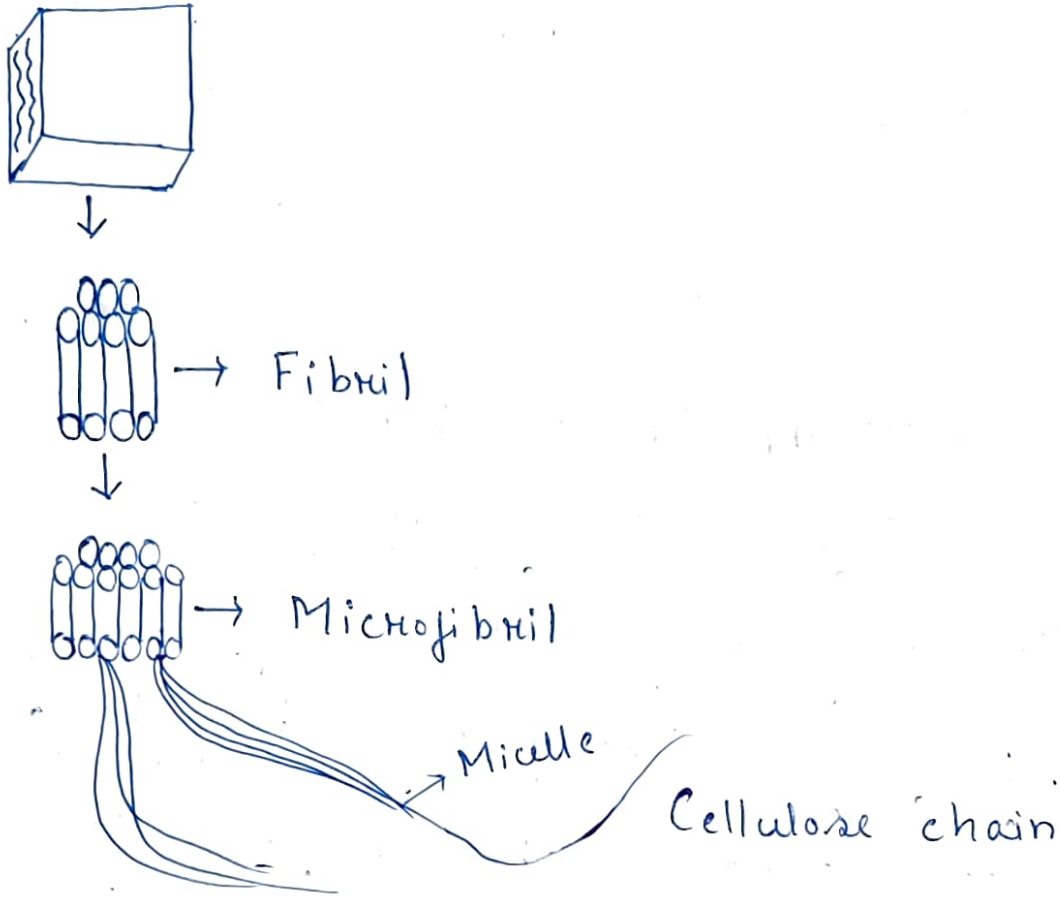 Fibril
Microfibril
Micelle
Cellulose chain